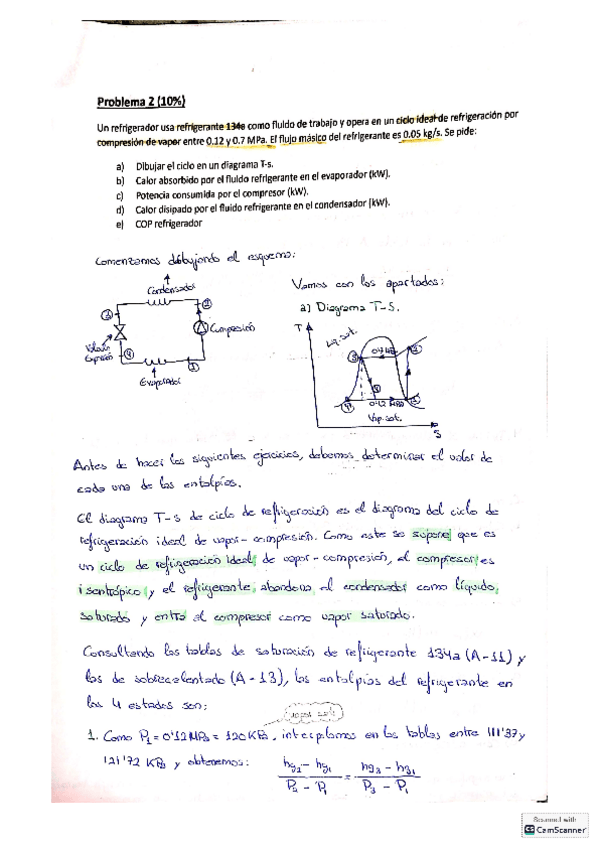 Problema 2 (10%)
Un refrigerador usa refrigerante 134a como fluido de trabajo y opera en un ciclo ideal de refrigeración por
compresión de vapor entre 0.12 y 0.7 MPa. El flujo másico del refrigerante es 0.05 kg/s. Se pide:
a) Dibujar el ciclo en un diagrama T-s.
b) Calor absorbido por el fluido refrigerante en el evaporador (kW).
c) Potencia consumida por el compresor (kW).
d) Calor disipado por el fluido refrigerante en el condensador (kW).
e) COP refrigerador
Comenzamos dibujando el esquema:
Condensador
3
2
Compresión
Válvula
Expansión
4
1
Evaporador
Vamos con los apartados:
a) Diagrama T-S.
T
Liq. sat.
3
2
4
0'12 MPa
1
Vap. sat.
S
Antes de hacer los siguientes ejercicios, debemos determinar el valor de
cada una de las entalpías.
El diagrama T-s de ciclo de refrigeración es el diagrama del ciclo de
refrigeración ideal de vapor-compresión. Como este se supone que es
un ciclo de refrigeración ideal de vapor-compresión, el compresor es
isentrópico y el refrigerante abandona el condensador como líquido
saturado y entra al compresor como vapor saturado.
Consultando las tablas de saturación de refrigerante 134a (A-11) y
las de sobrecalentado (A-13), las entalpías del refrigerante en
los 4 estados son:
vapor sat.
1. Como P1 = 0'12 MPa = 120 KPa, interpolamos en las tablas entre 111'37 y
121'72 KPa y obtenemos:
hg2 - hg1 / P2 - P1 = hg3 - hg1 / P3 - P1
Scanned with
CS CamScanner